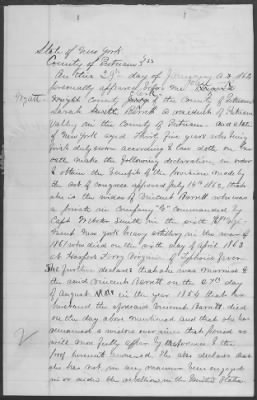 State of New York
County of Putnam } ss
On this 29th day of January A.D. 186
personally appeared before me
Wyatt County of the County of Putnam
Sarah Barrett a resident of Putnam
Valley in the County of Putnam and State
of New York aged thirty five years who being
first duly sworn according to law doth on her
oath make the following declaration in order
to obtain the benefits of the provision made by
the act of congress approved July 14th 1862, that
she is the widow of Vincent Barrett who was
a private in company G commanded by
Capt Webster Smith in the 6th Regi
ment New York Heavy Artillery in the war of
1861 who died on the day of April 1863
at Harpers Ferry Virginia of Typhoid Fever
She further declares that she was married to
the said Vincent Barrett on the 27th day
of August in the year 1854 that her
husband the aforesaid Vincent Barrett died
on the day above mentioned and that she has
remained a widow ever since that period as
will more fully appear by reference to the
proof hereunto annexed. She also declares that
she has not in any manner been engaged
in or aided the rebellion in the United States
2